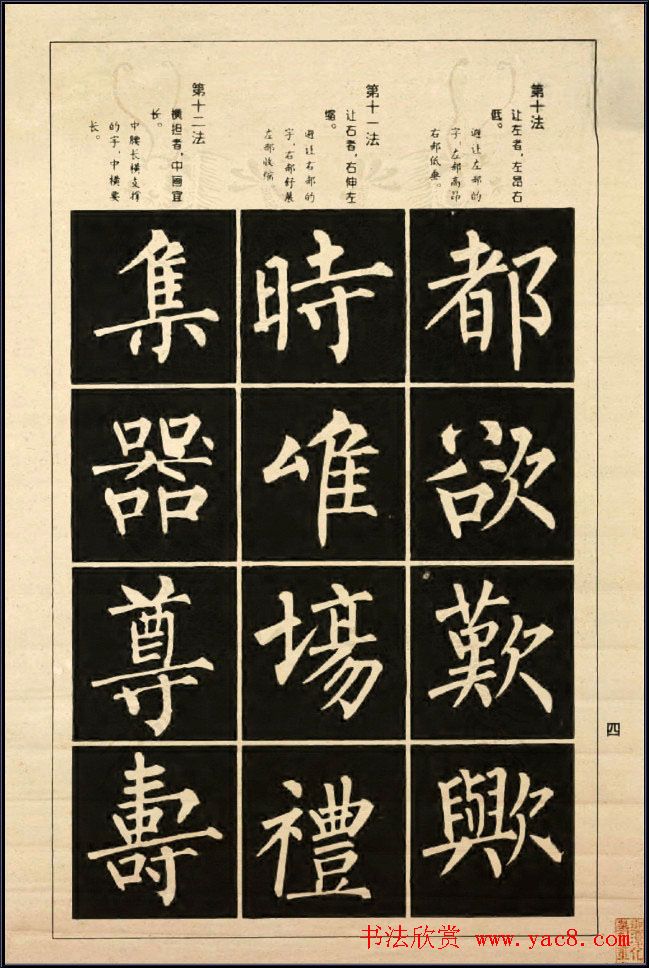 第十法
让左者，左昂右
低。
避让左部的
字，左部高昂
右部低垂。
第十一法
让右者，右伸左
缩。
避让右部的
字，右部舒展
左部收缩
第十二法
横担者，中画宜
长。
中腰长横支撑
的字，中横要
长。
都
欲
歎
歟
時
唯
場
禮
集
器
尊
壽
四
书法欣赏 www.yac8.com